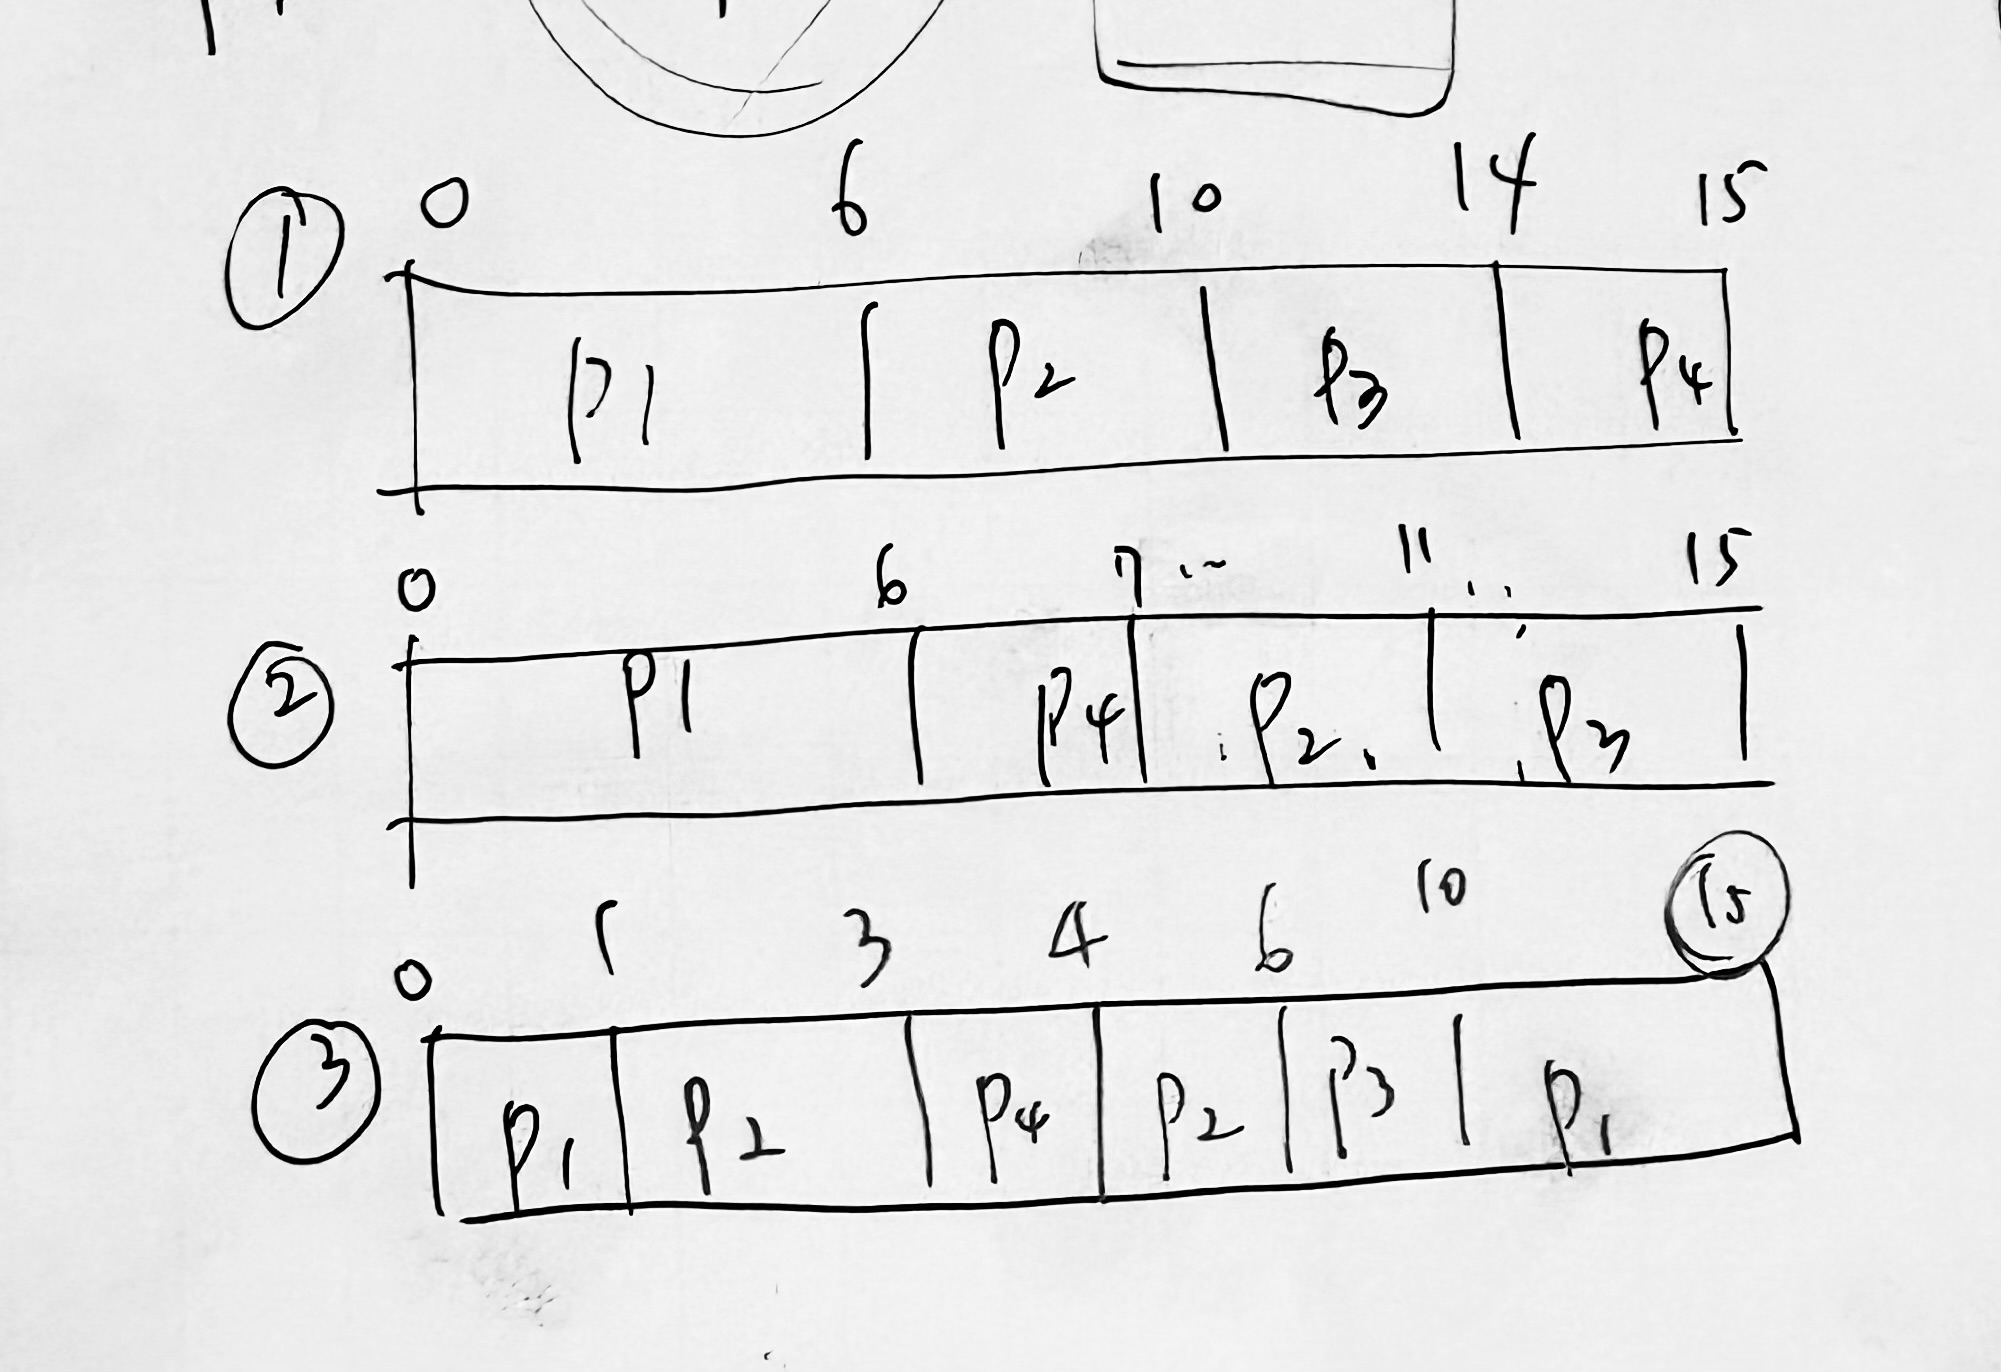 0 6 10 14 15
① P1 P2 P3 P4
0 6 7 ... 11 .. 15
② P1 P4 P2 P3
0 1 3 4 6 10 15
③ P1 P2 P4 P2 P3 P1